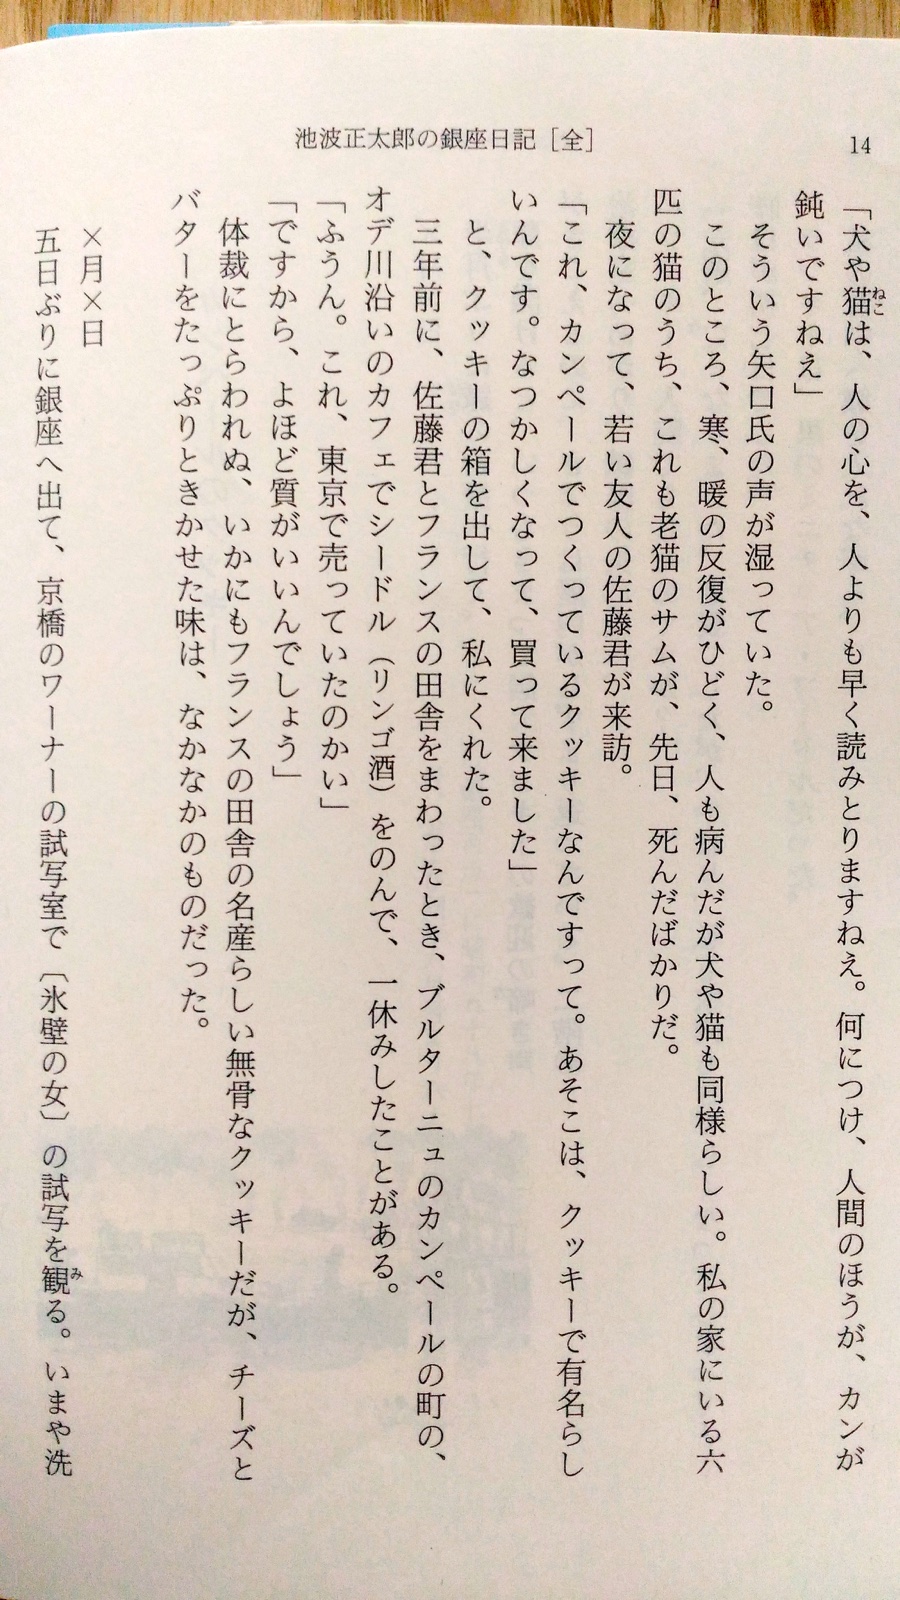 14
池波正太郎の銀座日記［全］
「犬や猫は、人の心を、人よりも早く読みとりますねえ。何につけ、人間のほうが、カンが
ねこ
鈍いですねえ」
そういう矢口氏の声が湿っていた。
このところ、寒、暖の反復がひどく、人も病んだが犬や猫も同様らしい。私の家にいる六
匹の猫のうち、これも老猫のサムが、先日、死んだばかりだ。
夜になって、若い友人の佐藤君が来訪。
「これ、カンペールでつくっているクッキーなんですって。あそこは、クッキーで有名らし
いんです。なつかしくなって、買って来ました」
と、クッキーの箱を出して、私にくれた。
三年前に、佐藤君とフランスの田舎をまわったとき、ブルターニュのカンペールの町の、
オデ川沿いのカフェでシードル（リンゴ酒）をのんで、一休みしたことがある。
「ふうん。これ、東京で売っていたのかい」
「ですから、よほど質がいいんでしょう」
体裁にとらわれぬ、いかにもフランスの田舎の名産らしい無骨なクッキーだが、チーズと
バターをたっぷりときかせた味は、なかなかのものだった。
×月×日
五日ぶりに銀座へ出て、京橋のワーナーの試写室で〔氷壁の女〕の試写を観る。いまや洗
み